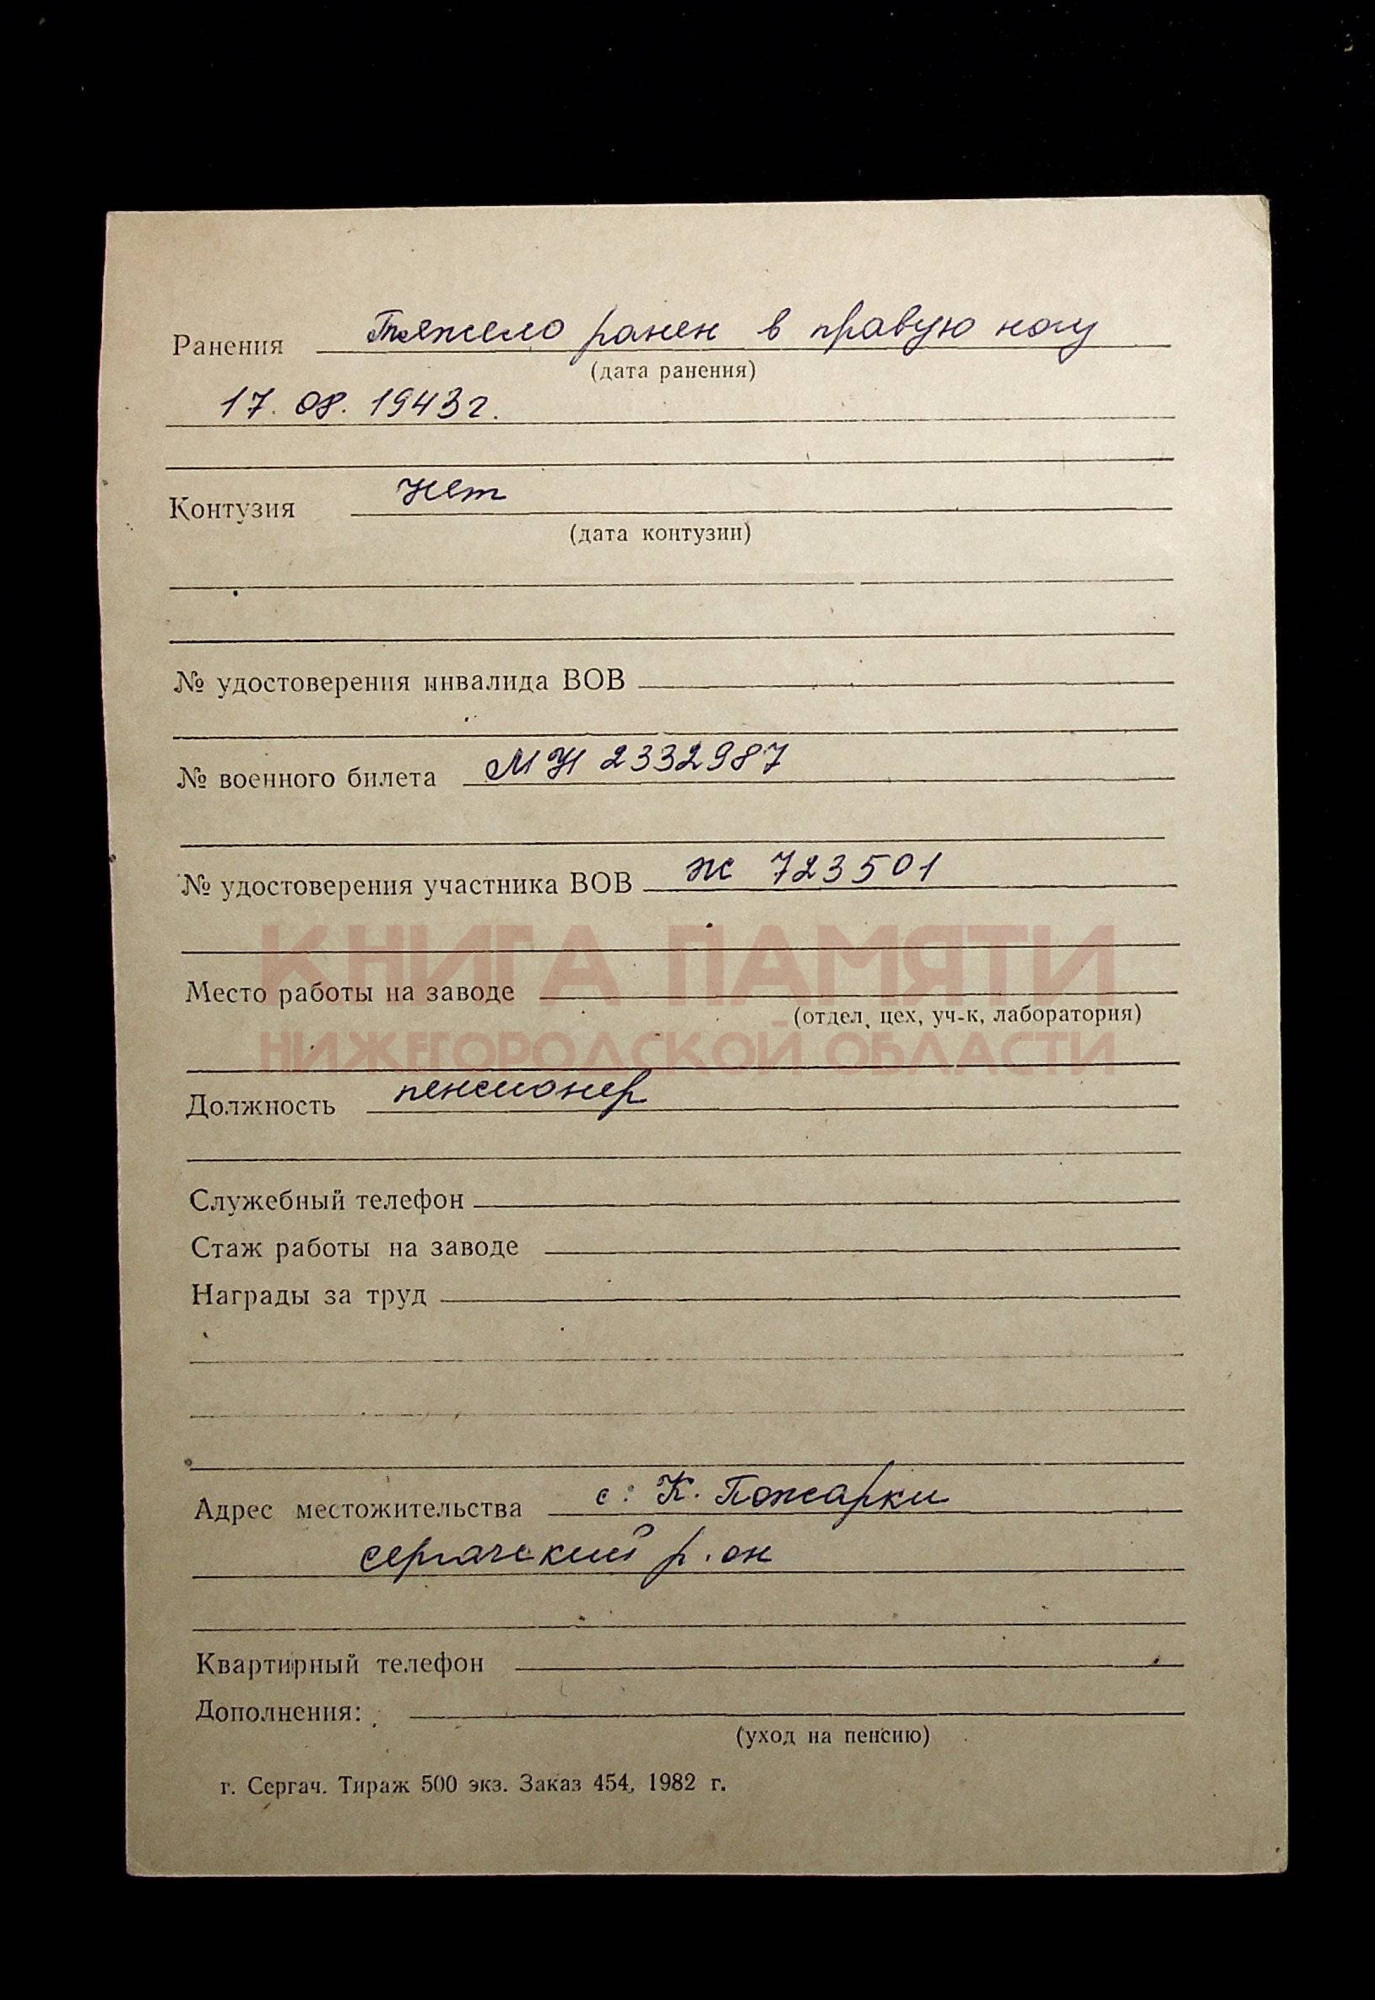 Ранения Тяжело ранен в правую ногу
(дата ранения)
17. 08. 1943 г.
Контузия Нет
(дата контузии)
№ удостоверения инвалида ВОВ
№ военного билета МН 2332987
№ удостоверения участника ВОВ Ж 723501
КНИГА ПАМЯТИ
Место работы на заводе
(отдел, цех, уч-к, лаборатория)
НИЖЕГОРОДСКОЙ ОБЛАСТИ
Должность пенсионер
Служебный телефон
Стаж работы на заводе
Награды за труд
Адрес местожительства с. К. Пожарки
сергачский р. он
Квартирный телефон
Дополнения:
(уход на пенсию)
г. Сергач. Тираж 500 экз. Заказ 454, 1982 г.